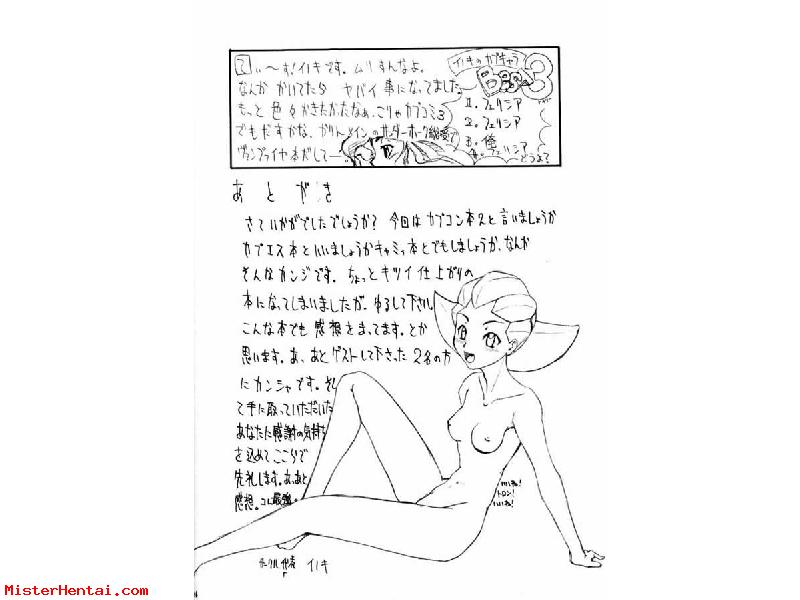 でぃ～す!イノキです。ムリすんなよ。
なんか かいてたら ヤバイ 事になってました。
もっと 色々かきたかたなあ、こりゃカプコミ3
でもだすかな、かりん メインの サンダーホーク総受で
ヴァンプァイヤ本だしてー
イノキのカプキャラ
Best 3
1. フェリシア
2. フェリシア
3. 俺
フェリシア
どうよ?
あとがき
さていかがでしたでしょうか? 今回は カプコン本2と言いましょうか
カプエス本といいましょうかキャミィ本とでもしましょうか、なんか
そんなカンジです。ちょっとキツイ仕上がりの
本になってしまいましたが、ゆるして下さい。
こんな本でも 感想をまってます。とか
思います。あ、あとゲストして下さった 2名の方
にカンシャです。そし
て手に取っていただいた
あなたに感謝の気持ち
を込めてここらで
失礼します。あ、あと
感想。コレ最強。
トロン!
いいね!
サークル代表 イノキ
MisterHentai.com